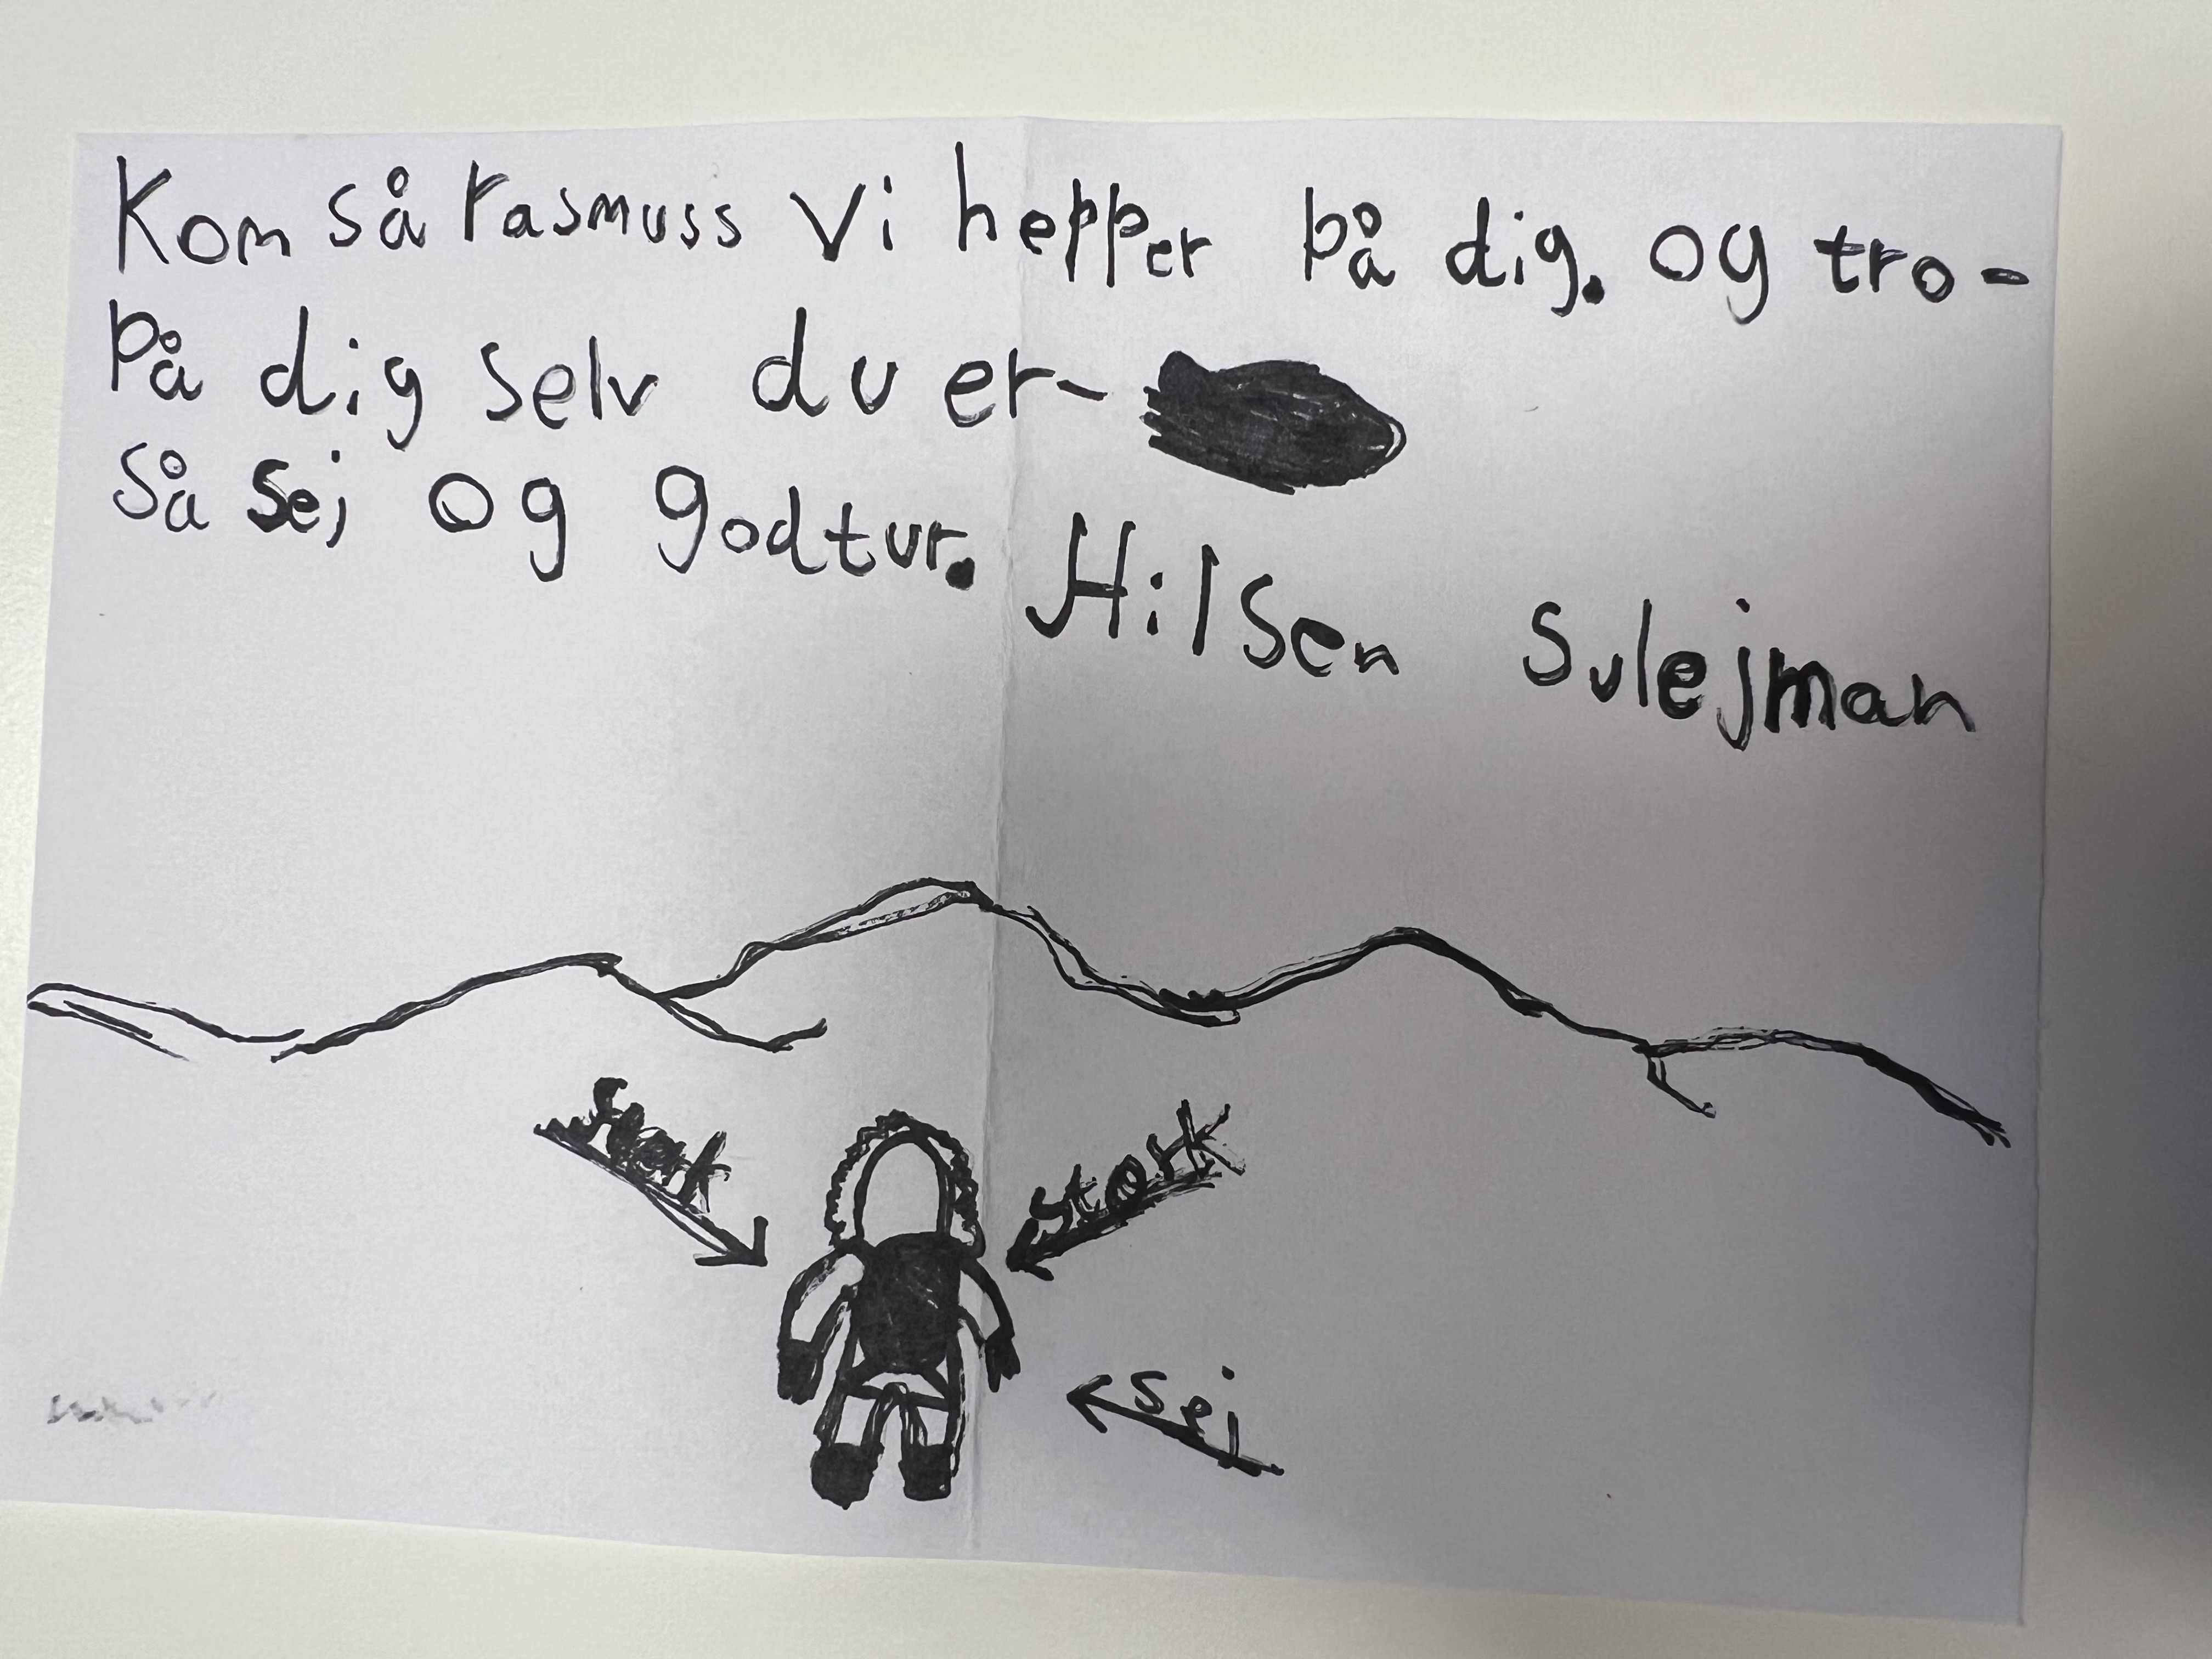 Kom så rasmuss vi hepper på dig. og tro-
på dig selv du er-
så sej og godtur. Hilsen Sulejman
stærk
stærk
sej